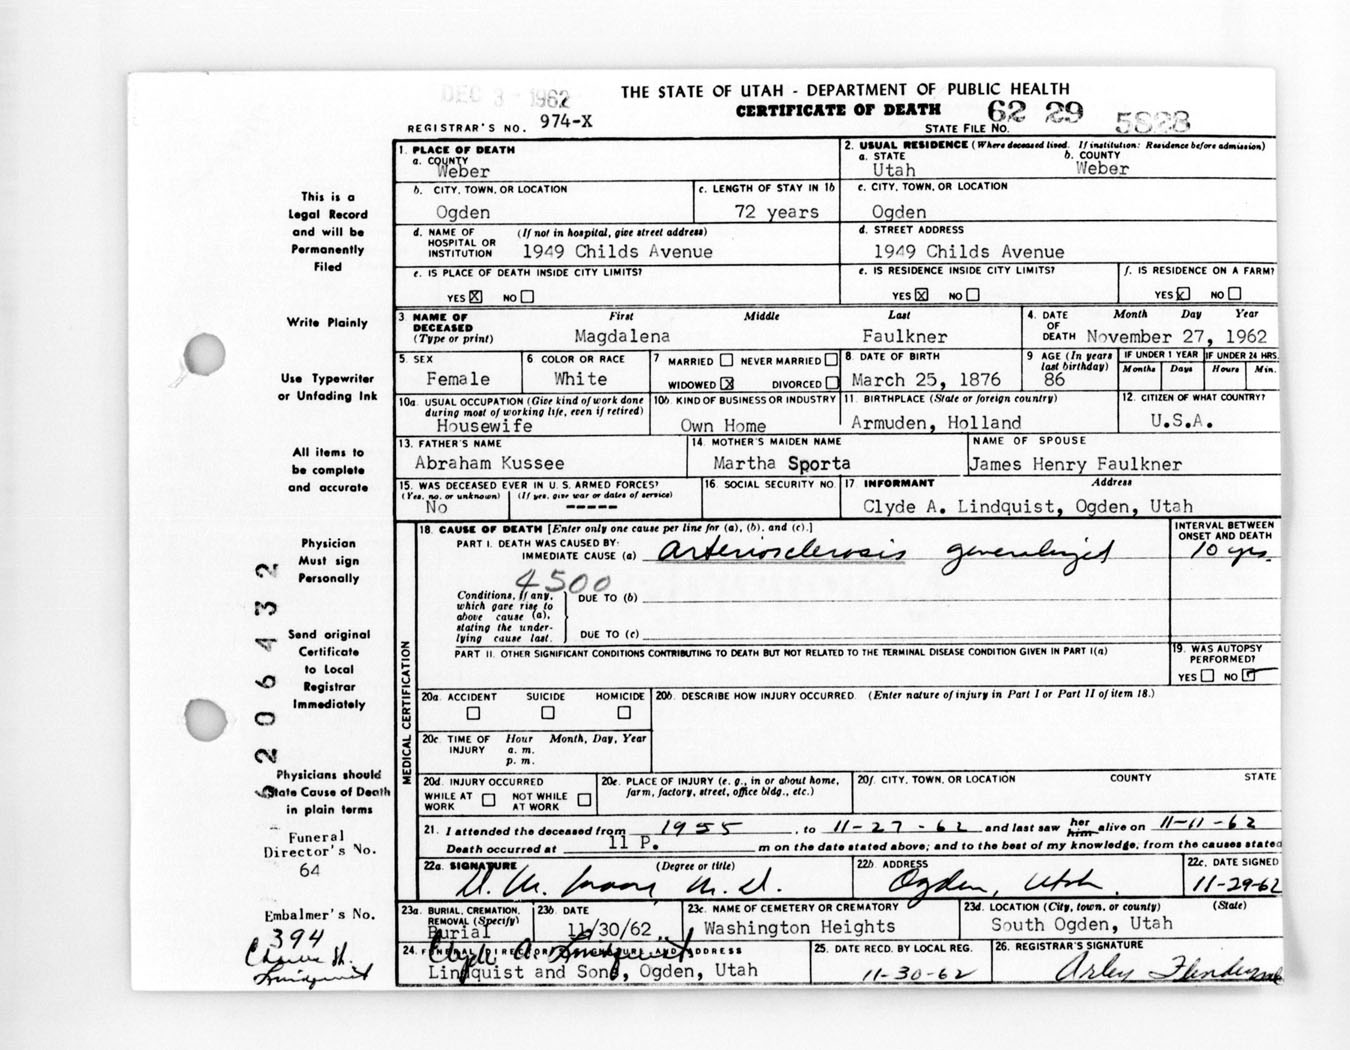 DEC 3 1962
THE STATE OF UTAH - DEPARTMENT OF PUBLIC HEALTH
CERTIFICATE OF DEATH 62 29 5828
REGISTRAR'S NO. 974-X STATE FILE NO.
This is a
Legal Record
and will be
Permanently
Filed
Write Plainly
Use Typewriter
or Unfading Ink
All items to
be complete
and accurate
Physician
Must sign
Personally
Send original
Certificate
to Local
Registrar
Immediately
Physicians should
State Cause of Death
in plain terms
Funeral
Director's No.
64
Embalmer's No.
394
Lindquist
206432
1. PLACE OF DEATH
a. COUNTY
Weber
2. USUAL RESIDENCE (Where deceased lived. If institution: Residence before admission)
a. STATE b. COUNTY
Utah Weber
b. CITY, TOWN, OR LOCATION c. LENGTH OF STAY IN 1b
Ogden 72 years
c. CITY, TOWN, OR LOCATION
Ogden
d. NAME OF HOSPITAL OR INSTITUTION (If not in hospital, give street address)
1949 Childs Avenue
d. STREET ADDRESS
1949 Childs Avenue
e. IS PLACE OF DEATH INSIDE CITY LIMITS?
YES X NO
e. IS RESIDENCE INSIDE CITY LIMITS? f. IS RESIDENCE ON A FARM?
YES X NO YES NO
3 NAME OF DECEASED (Type or print) First Middle Last
Magdalena Faulkner
4. DATE OF DEATH Month Day Year
November 27, 1962
5. SEX 6 COLOR OR RACE 7 MARRIED NEVER MARRIED WIDOWED X DIVORCED
Female White
8 DATE OF BIRTH
March 25, 1876
9 AGE (In years last birthday) IF UNDER 1 YEAR IF UNDER 24 HRS.
86 Months Days Hours Min.
10a. USUAL OCCUPATION (Give kind of work done during most of working life, even if retired)
Housewife
10b. KIND OF BUSINESS OR INDUSTRY
Own Home
11. BIRTHPLACE (State or foreign country)
Armuden, Holland
12. CITIZEN OF WHAT COUNTRY?
U.S.A.
13. FATHER'S NAME 14. MOTHER'S MAIDEN NAME NAME OF SPOUSE
Abraham Kussee Martha Sporta James Henry Faulkner
15. WAS DECEASED EVER IN U. S. ARMED FORCES? 16. SOCIAL SECURITY NO. 17 INFORMANT Address
(Yes, no, or unknown) (If yes, give war or dates of service)
No ----- Clyde A. Lindquist, Ogden, Utah
MEDICAL CERTIFICATION
18. CAUSE OF DEATH [Enter only one cause per line for (a), (b), and (c).] INTERVAL BETWEEN ONSET AND DEATH
PART I. DEATH WAS CAUSED BY:
IMMEDIATE CAUSE (a) arteriosclerosis generalized 10 yrs.
4500
Conditions, if any, which gave rise to above cause (a), stating the underlying cause last.
DUE TO (b)
DUE TO (c)
PART II. OTHER SIGNIFICANT CONDITIONS CONTRIBUTING TO DEATH BUT NOT RELATED TO THE TERMINAL DISEASE CONDITION GIVEN IN PART I(a)
19. WAS AUTOPSY PERFORMED?
YES NO
20a. ACCIDENT SUICIDE HOMICIDE 20b. DESCRIBE HOW INJURY OCCURRED. (Enter nature of injury in Part I or Part II of item 18.)
20c. TIME OF INJURY Hour Month, Day, Year
a. m.
p. m.
20d. INJURY OCCURRED
WHILE AT WORK NOT WHILE AT WORK
20e. PLACE OF INJURY (e. g., in or about home, farm, factory, street, office bldg., etc.)
20f. CITY, TOWN, OR LOCATION COUNTY STATE
21. I attended the deceased from 1955, to 11-27-62 and last saw her him alive on 11-11-62
Death occurred at 11 P. m on the date stated above; and to the best of my knowledge, from the causes stated
22a. SIGNATURE (Degree or title) 22b. ADDRESS 22c. DATE SIGNED
M.D. Ogden, Utah 11-29-62
23a. BURIAL, CREMATION, REMOVAL (Specify) 23b. DATE 23c. NAME OF CEMETERY OR CREMATORY 23d. LOCATION (City, town, or county) (State)
Burial 11/30/62 Washington Heights South Ogden, Utah
24. FUNERAL DIRECTOR'S SIGNATURE AND ADDRESS 25. DATE RECD. BY LOCAL REG. 26. REGISTRAR'S SIGNATURE
Clyde A. Lindquist
Lindquist and Sons, Ogden, Utah 11-30-62